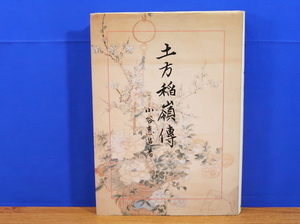 土方稲嶺傳
小谷恵造著